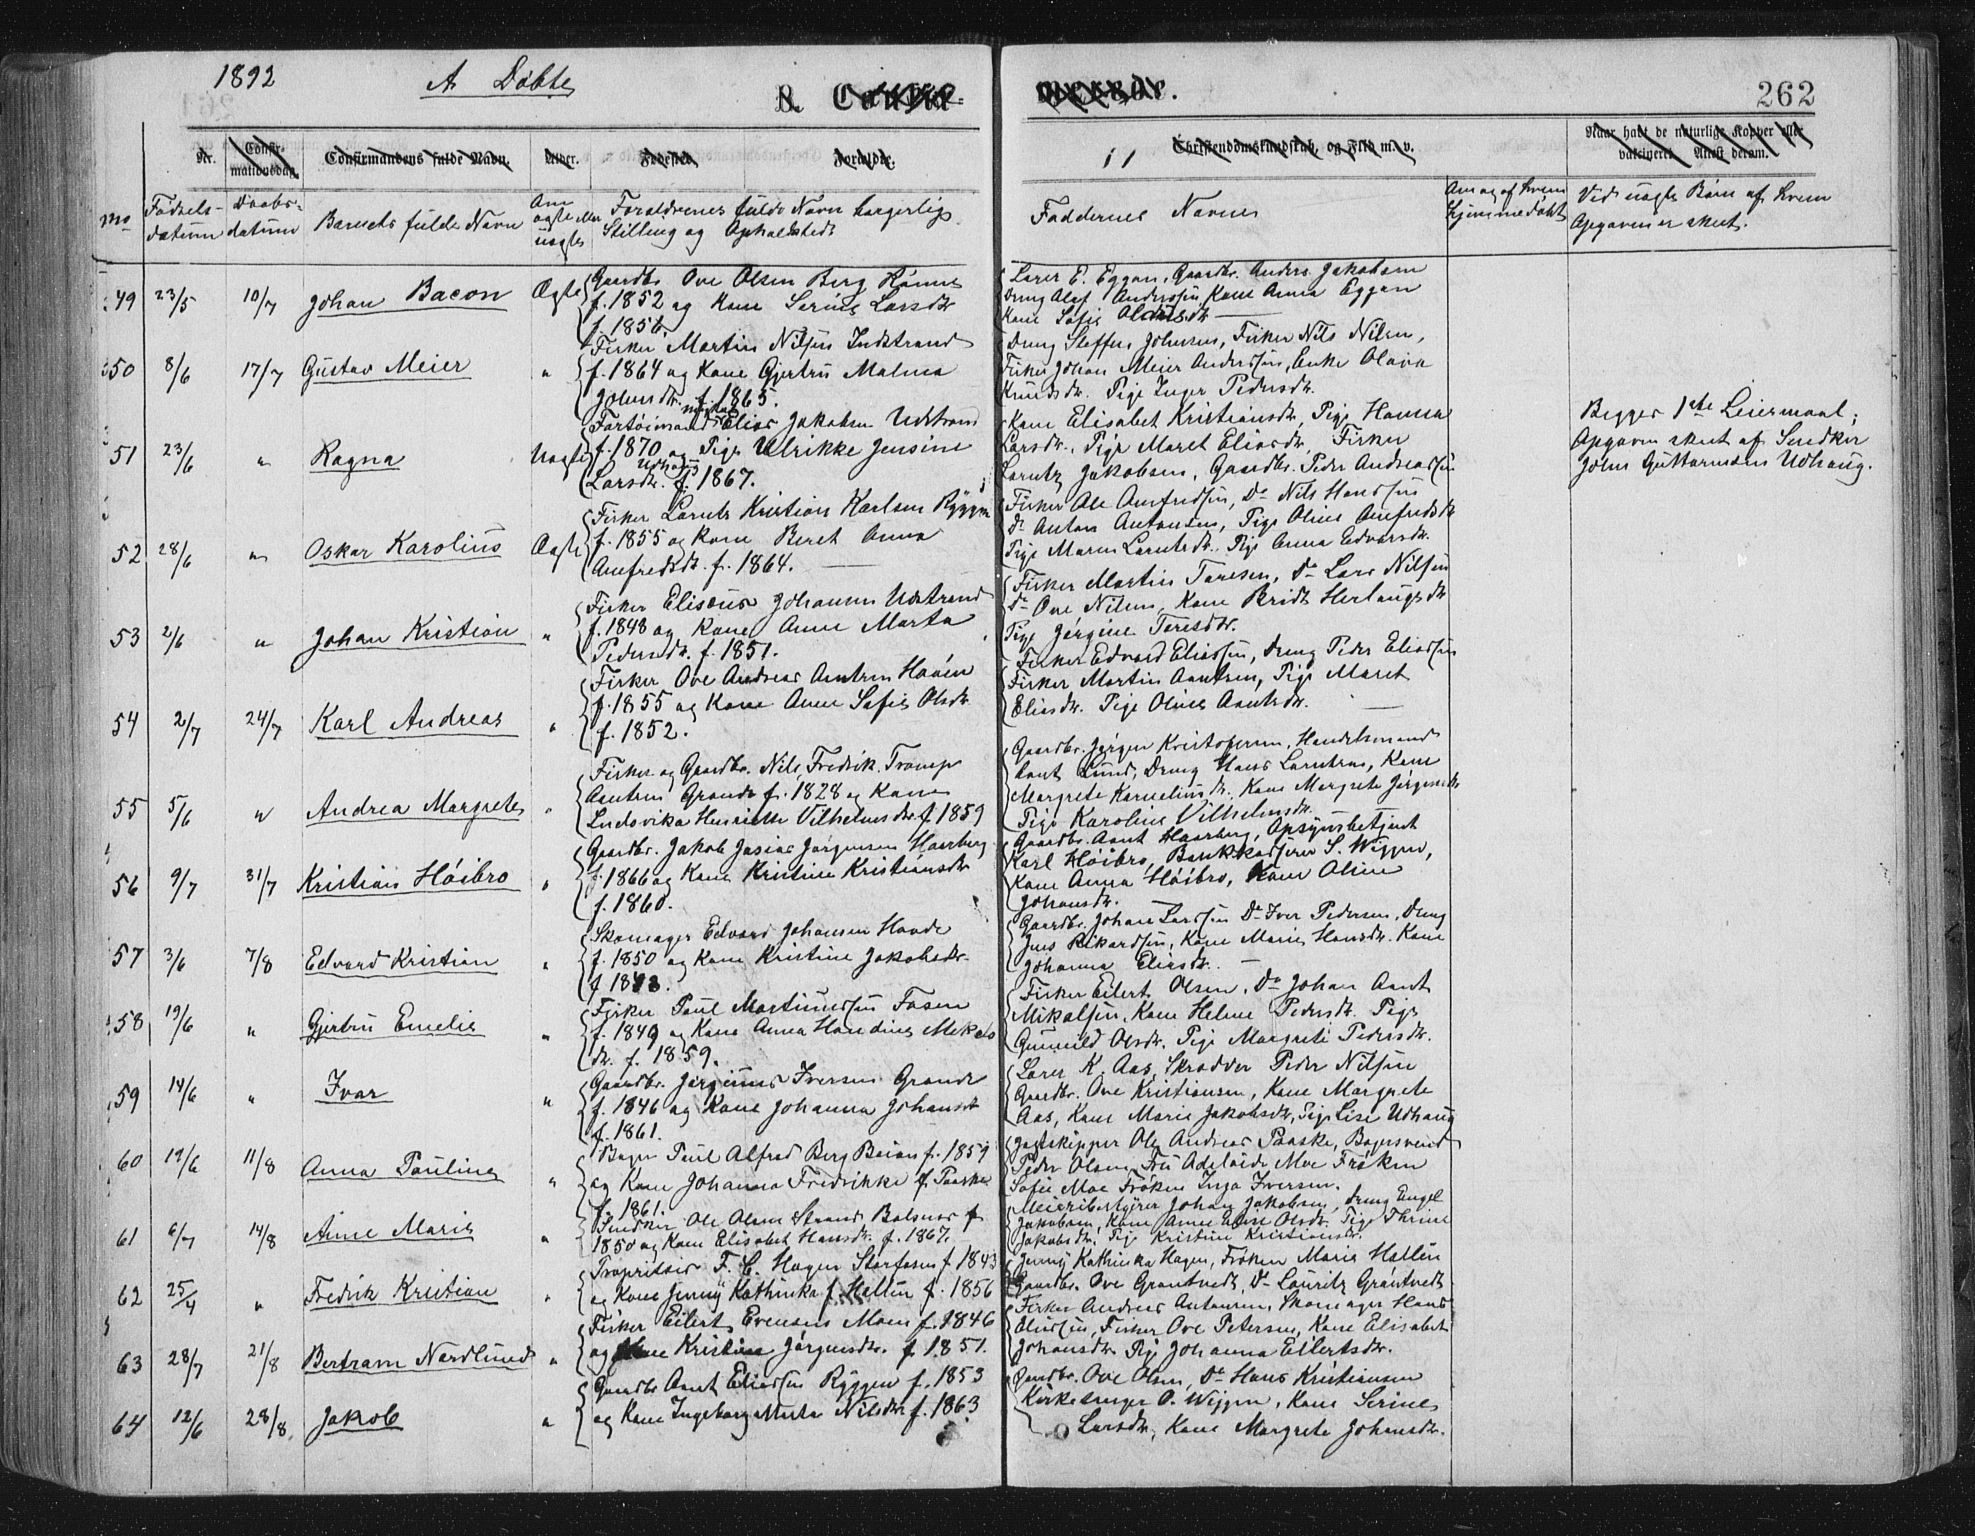 1892 A Døbte
B. Confir= merede. 262
Nr. Confir-mationsdag. Confirmandens fulde Navn. Alder. Fødested. Forældre. Christendomskundskab og Flid m. v. Naar havt de naturlige Kopper eller vaccineret. Attest derom.
No Fødsels-datum Daabs-datum Barnets fulde Navn Om ægte eller uægte Forældrenes fulde Navn borgerlige Stilling og Opholdssted Faddernes Navne Om og af hvem hjemmedøbt Ved uægte Børn af hvem Opgaven er skeet.
49 23/5 10/7 Johan Bacon Ægte
Gaardbr. Ove Olsen Berg Rønne
f. 1852 og Kone Serine Larsdtr
f. 1856.
Lærer E. Eggan, Gaardbr. Anders Jakobsen
Dreng Olaf Anderssen, Kone Anna Eggan
Kone Sofie Olausdtr
50 8/6 17/7 Gustav Meier "
Fisker Martin Nilsen Indstrand
f. 1864 og Kone Gjertru Malena
Johnsdtr. f. 1865.
Dreng Steffen Johnsen, Fisker Nils Nilsen,
Fisker Johan Meier Anderssen, Enke Olava
Knudsdtr. Pige Inger Pedersdtr.
51 23/6 " Ragna Uægte
Elias Jakobsen Udstrand
f. 1870 og Pige Ulrikke Jensine
Larsdtr. Udhaug f. 1867.
Kone Elisabet Kristiansdtr, Pige Hanna
Larsdtr., Pige Maret Eliasdtr, Fisker
Lorntz Jakobsen, Gaardbr. Peder Andreassen
Begges 1ste Leiermaal;
Opgaven skeet af Smedker
John Guttormsen Udhaug.
52 28/6 " Oskar Karolius Ægte
Fisker Lorntz Kristian Karlsen Ryggen
f. 1855 og Kone Beret Anna
Amfredsdtr. f. 1864.
Fisker Ole Amfredsen, Do Nils Hanssen
Do Anton Antonsen, Pige Oline Amfredsdtr
Pige Maren Lorntsdtr. Pige Anna Edvardsdtr.
53 2/6 " Johan Kristian "
Fisker Elisæus Johansen Udstrand
f. 1848 og Kone Anne Marta
Pedersdtr. f. 1851.
Fisker Martin Toresen, Do Lars Nilsen
Do Ove Nilsen, Kone Bridt Herlaugsdtr
Pige Jørgine Toresdtr.
54 2/7 24/7 Karl Andreas "
Fisker Ove Andreas Arntsen Hoøen
f. 1855 og Kone Anne Sofie Olsdtr
f. 1852.
Fisker Edvard Eliassen, Dreng Peder Eliassen
Fisker Martin Arntsen, Pige Maret
Eliasdtr. Pige Oline Arntsdtr.
55 5/6 " Andrea Margrete "
Fisker og Gaardbr. Nils Fredrik Tramp
Arntsen Grande f. 1828 og Kone
Ludovika Henriette Vilhelmsdtr f. 1859
Gaardbr. Jørgen Kristofersen, Handelsmand
Lund, Dreng Hans Lorntsen, Kone
Margrete Korneliusdtr. Kone Margrete Jørgensdtr
Pige Karoline Vilhelmsdtr.
56 9/7 31/7 Kristian Høibro "
Gaardbr. Jakob Josias Jørgensen Haarberg
f. 1866 og Kone Kristine Kristiansdtr
f. 1860.
Gaardbr. Arnt Haarberg, Opsynsbetjent
Karl Høibro, Bankkasserer S. Wiggen,
Kone Anna Høibro, Kone Oline
Johansdtr.
57 3/6 7/8 Edvard Kristian "
Skomager Edvard Johansen Hovde
f. 1850 og Kone Kristine Jakobsdtr
Gaardbr. Johan Larssen Do Iver Pedersen, Dreng
Jens Rikardsen, Kone Marie Hansdtr. Kone
Johanna Eliasdtr.
58 19/6 " Gjertru Emelie "
Fisker Paul Martinussen Fosen
f. 1849 og Kone Anna Hansdine Mikals
dtr. f. 1859.
Fisker Eilert Olsen, Do Johan Arnt
Mikalsen, Kone Helene Pedersdtr. Pige
Gunnild Olsdtr. Pige Margrete Pedersdtr.
59 14/6 " Ivar "
Gaardbr. Jørginus Iversen Grande
f. 1846 og Kone Johanna Johansdtr
f. 1861.
Lærer K. Aas, Skrædder Peder Nilsen
Gaardbr. Ove Kristiansen, Kone Margrete
Aas, Kone Marie Jakobsdtr, Pige Lise Udhaug
60 19/6 11/8 Anna Pauline "
Bager Paul Alfred Berg Beian f. 1859
og Kone Johanna Fredrikke f. Paaske
f. 1861.
Jagtskipper Ole Andreas Paaske, Bagersvend
Peder Olsen, Fru Adelaide Moe Frøken
Sofie Moe Frøken Inga Iversen.
61 6/7 14/8 Anne Marie "
Smedker Ole Olsen Strand Balsnes f
1850 og Kone Elisabet Hansdtr. f. 1867.
Meieribestyrer Johan Jakobsen, Dreng Engel
Jakobsen, Kone Anne Olsdtr. Pige Thrine
Jakobsdtr. Pige Kristine Kristiansdtr.
62 25/4 " Fredrik Kristian "
Proprietær F. C. Hagen Storfosen f 1843
og Kone Jenny Kathinka f. Hallin f. 1856
Jenny Kathinka Hagen, Frøken Maria Hallin
Gaardbr. Ove Grøntvedt, Do Lauritz Grøntvedt
63 28/7 21/8 Bertram Nordlund "
Fisker Eilert Evensen Moen f. 1846
og Kone Kristine Jørgensdtr. f. 1851.
Fisker Andreas Antonsen, Skomager Hans
Olussen, Fisker Ove Petersen, Kone Elisabet
Johansdtr Pige Johanna Eilertsdtr.
64 12/6 28/8 Jakob "
Gaardbr Arnt Eliassen Ryggen f. 1853
og Kone Ingeborg Marta Nilsdtr f. 1863
Gaardbr. Ove Olsen, Do Hans Kristiansen
Kirkesanger O. Wiggen, Kone Serine
Larsdtr, Kone Margrete Johansdtr.